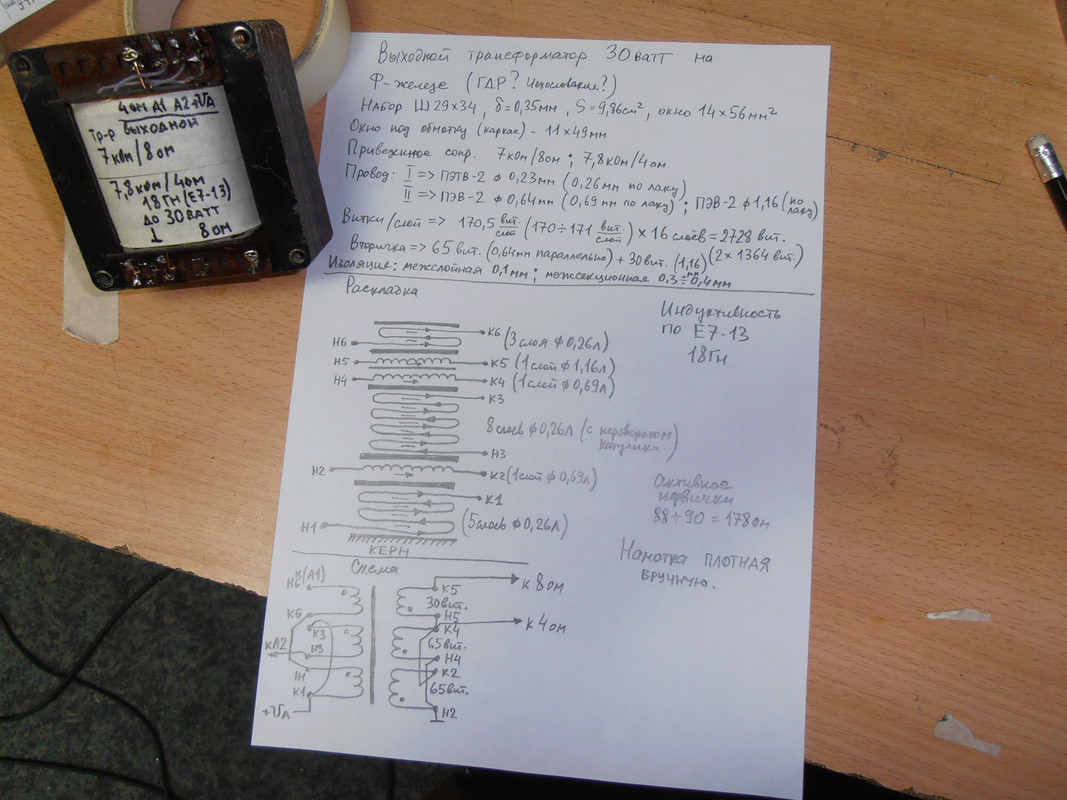 4 ом А1 А2 +Ua
Тр-р выходной
7 ком / 8 ом
7,8 ком / 4 ом
18 Гн (Е7-13)
до 30 ватт
⊥ 8 ом
Выходной трансформатор 30 ватт на
Ф-железе (ГДР? Чехословакия?)
Набор Ш 29×34, δ=0,35мм, S=9,86см², окно 14×56мм²
Окно под обмотку (каркас) - 11×49мм
Приведенное сопр. 7 ком/8 ом ; 7,8 ком/4 ом
Провод: I => ПЭТВ-2 ф 0,23мм (0,26мм по лаку)
II => ПЭВ-2 ф 0,64мм (0,69мм по лаку) ; ПЭВ-2 ф 1,16 (по лаку)
Витки/слой => 170,5 вит./слой (170÷171 вит./слой) × 16 слоёв = 2728 вит.
(2 × 1364 вит.)
Вторичка => 65 вит. (0,64мм параллельно) + 30 вит. (1,16)
Изоляция: межслойная 0,1мм ; межсекционная 0,3мм÷0,4мм
Раскладка
Н6 К6 (3 слоя ф 0,26л)
Н5 К5 (1 слой ф 1,16л)
Н4 К4 (1 слой ф 0,69л)
К3
8 слоев ф 0,26л (с переворотом катушки)
Н3
Н2 К2 (1 слой ф 0,69л)
К1
Н1 (5 слоев ф 0,26л)
КЕРН
Индуктивность
по Е7-13
18 Гн
Активное
первички
88÷90 = 178 ом
Намотка плотная
вручную.
Схема
к (А1)
Н6
К6
К3
кА2
Н3
Н1
К1
+Ua
К5
к 8 ом
30 вит.
Н5
к 4 ом
К4
65 вит.
Н4
К2
65 вит.
Н2